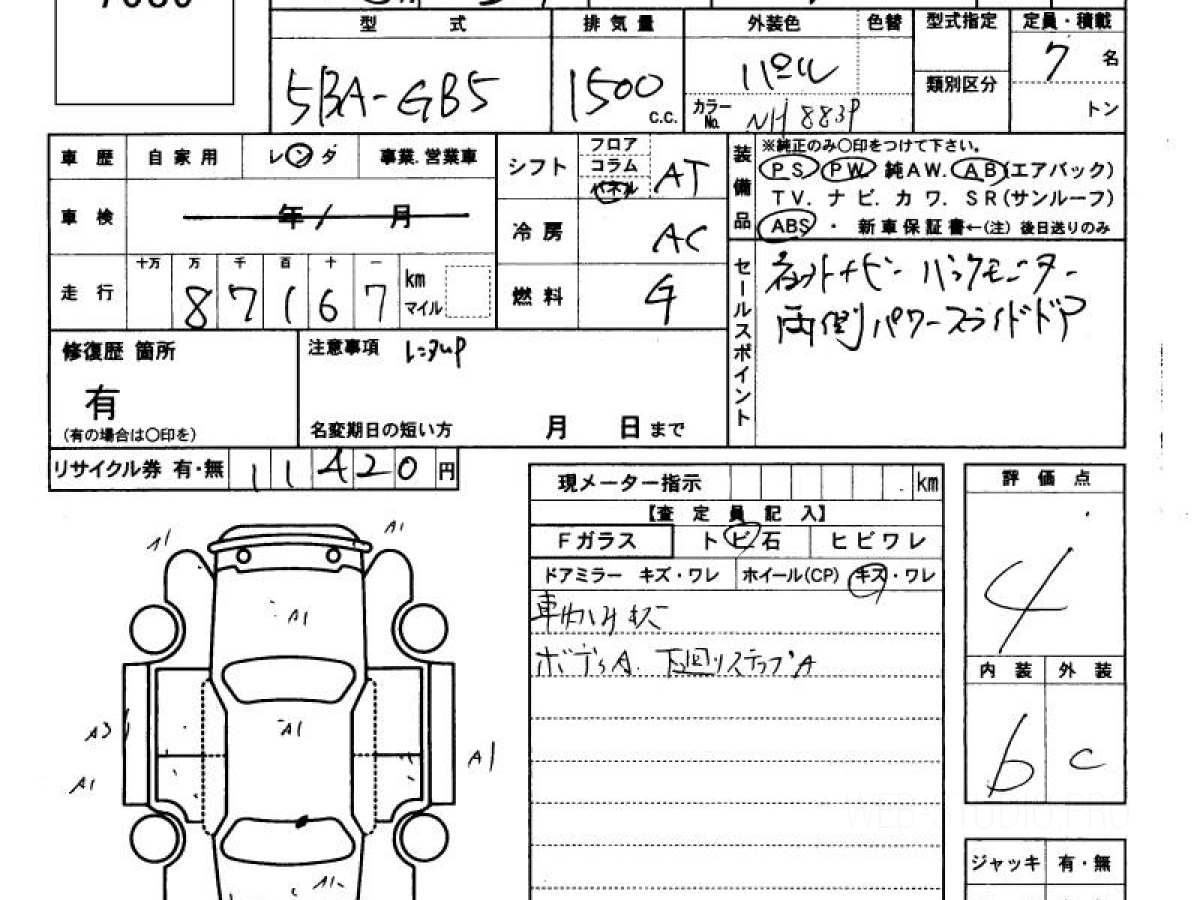 型式 排気量 外装色 色替 型式指定 定員・積載
5BA-GB5 1500 c.c. パール 7名
カラーNo. NH 883P 類別区分 トン
車歴 自家用 レンタ 事業.営業車
シフト フロア コラム パネル AT
装備品 ※純正のみ○印をつけて下さい。
PS PW 純AW. AB(エアバック)
TV. ナビ. カワ. SR(サンルーフ)
ABS ・ 新車保証書←(注) 後日送りのみ
車検 年 / 月
冷房 AC
走行 十万 万 千 百 十 一
8 7 1 6 7 km マイル
燃料 G
セールスポイント
ネットナビ バックモニター
両側パワースライドドア
修復歴 箇所
有
(有の場合は○印を)
注意事項 レンタUP
名変期日の短い方 月 日まで
リサイクル券 有・無 11420円
現メーター指示 . km
【査定員記入】
Fガラス トビ石 ヒビワレ
ドアミラー キズ・ワレ ホイール(CP) キズ・ワレ
ボデーA. 下回リステップA
評価点
4
内装 外装
b c
ジャッキ 有・無
A1
A1
A1
A3
A1
A1
A1
A1